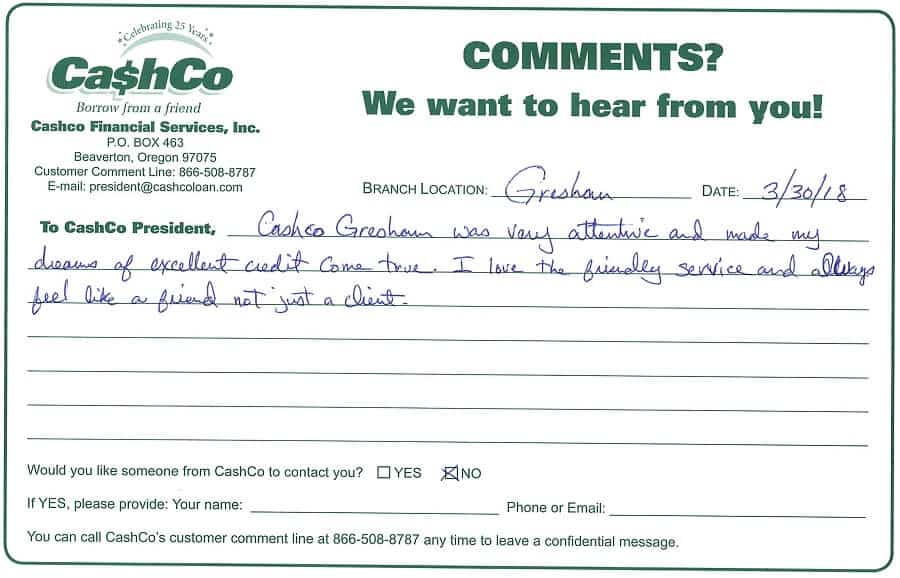 Celebrating 25 Years
Ca$hCo
Borrow from a friend
Cashco Financial Services, Inc.
P.O. BOX 463
Beaverton, Oregon 97075
Customer Comment Line: 866-508-8787
E-mail: president@cashcoloan.com
COMMENTS?
We want to hear from you!
BRANCH LOCATION: Gresham DATE: 3/30/18
To CashCo President, Cashco Gresham was very attentive and made my
dreams of excellent credit come true. I love the friendly service and always
feel like a friend not just a client.
Would you like someone from CashCo to contact you? YES NO
If YES, please provide: Your name: Phone or Email:
You can call CashCo's customer comment line at 866-508-8787 any time to leave a confidential message.